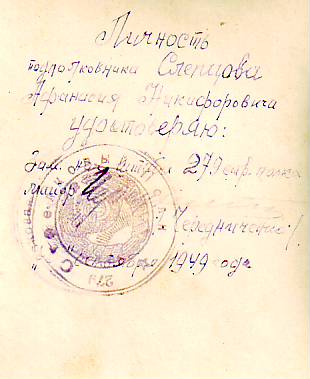 Личность
подполковника Слепцова
Афанасия Никифоровича
удостоверяю:
Зам. ком. 279 стр. полка
Майор
/Чередниченко/
" " октября 1949 года
279